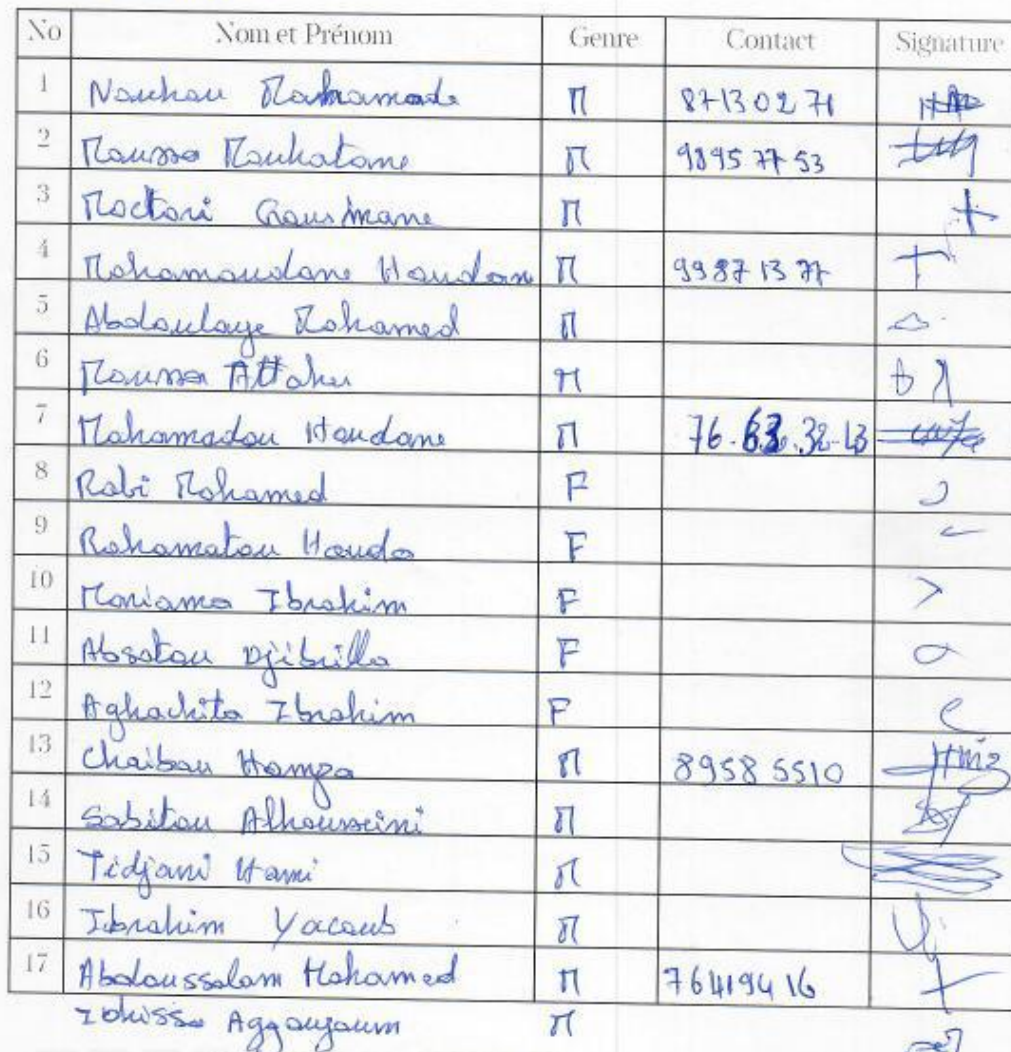 No Nom et Prénom Genre Contact Signature
1 Nouhou Mahamade M 87130271
2 Moussa Mouhatane M 98957753
3 Moctari Gousmane M
4 Mohamoudane Houdan M 99871377
5 Abdoulaye Mohamed M
6 Moussa Attaher M
7 Mahamadou Houdane M 76.63.32-13
8 Rabi Mohamed F
9 Rahamatou Houda F
10 Mariama Ibrahim F
11 Absatou Djibrilla F
12 Aghachita Ibrahim F
13 Chaibou Hamza M 89585510
14 Sabitou Alhousseini M
15 Tidjani Hami M
16 Ibrahim Yacoub M
17 Abdoussalam Mohamed M 76419416
Aggoujoum M